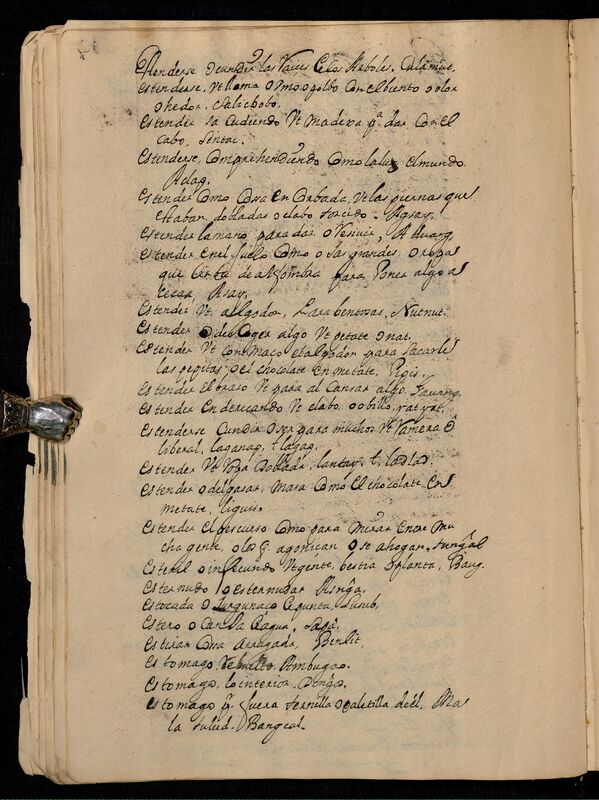 Estenderse o cundir las Raices de los Arboles. Calamut.
Estenderse, Vt llama o mo o polbo, Con el biento o olor
o hedor. Salichobo.
Estender sa cudiendo Vt madera pª. dar Con el
Cabo, Sentac.
Estenderse, Comprehendiendo Como la luz el mundo
Aclag,
Estender Como Cosa En Corbada, Vt las piernas que
estaban dobladas o clabo torcido. Agsay,
Estender la mano para dar o Venuir, Aduang
Estender en el suelo Como o las grandes o ropas
que sirba de alfombra para Poner algo a
secar, Asay.
Estender Vt algodon, Para bentosas, Nutnut.
Estender o des Coger algo Vt petate onat.
Estender Vt con Maco el algodon para sacarle
las pepitas, o el chocolate en metate, Pigis.
Estender el braso Vt para al Cansar algo, Tauang,
Estender Enderecando Vt clabo, o obillo, yatyat,
Estenderse Cundir o ser para muchos Vt Vanera o
liberal, laganap, t laga p.
Estender Vt Ropa Doblada, lantay, t, ladlad.
Estender o delgasar, Masa Como El chocolate En
metate, liguis.
Estender El pescueso Como para mirar Entre Mu
cha gente, o los q. agonican o se ahogan, sungal
Esteril o infecundo Vt gente, bestia o planta, Baug.
Esternudo, o esternudar Asnga.
Estocada o surgunaço de punta, Sulub.
Estero o Canal de Agua, Sapa.
Estirar Cosa Arrugada, Benlit,
Estomago Rebuelto Ambugao.
Estomago, lo interior. Denga.
Estomago, q. suera ternilla o paletilla de el, Ma
la salud. Bangcal